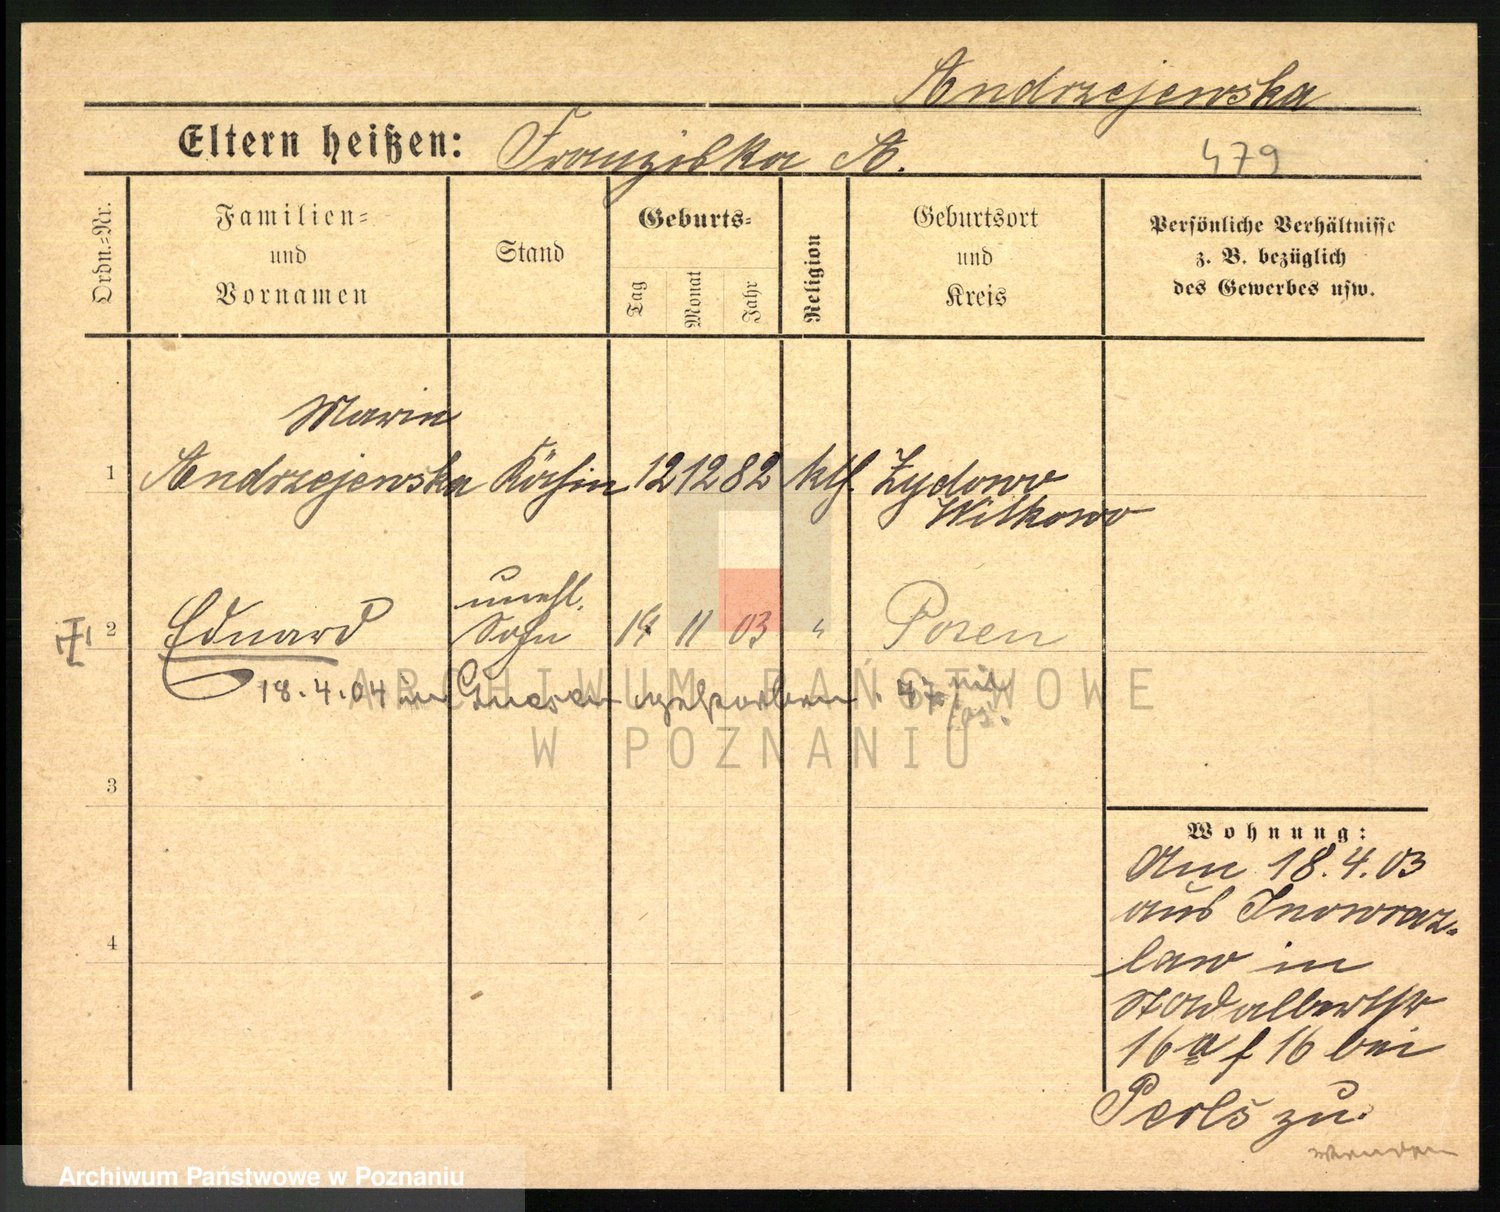 Andrzejewska
Eltern heißen: Franziska A.
479
Ordn.=Nr.
Familien=
und
Vornamen
Stand
Geburts=
Tag
Monat
Jahr
Religion
Geburtsort
und
Kreis
Persönliche Verhältnisse
z. B. bezüglich
des Gewerbes usw.
Maria
1 Andrzejewska Köchin 12 12 82 kth. Zydowo
Witkowo
unehl.
2 Eduard Sohn 14 11 03 " Posen
18.4.04 in Gnesen gestorben. 47
3
4
Wohnung:
Am 18.4.03
aus Inowraz-
law in
16a f 16 bei
Perls zu.
wenden
ARCHIWUM PAŃSTWOWE
W POZNANIU
Archiwum Państwowe w Poznaniu